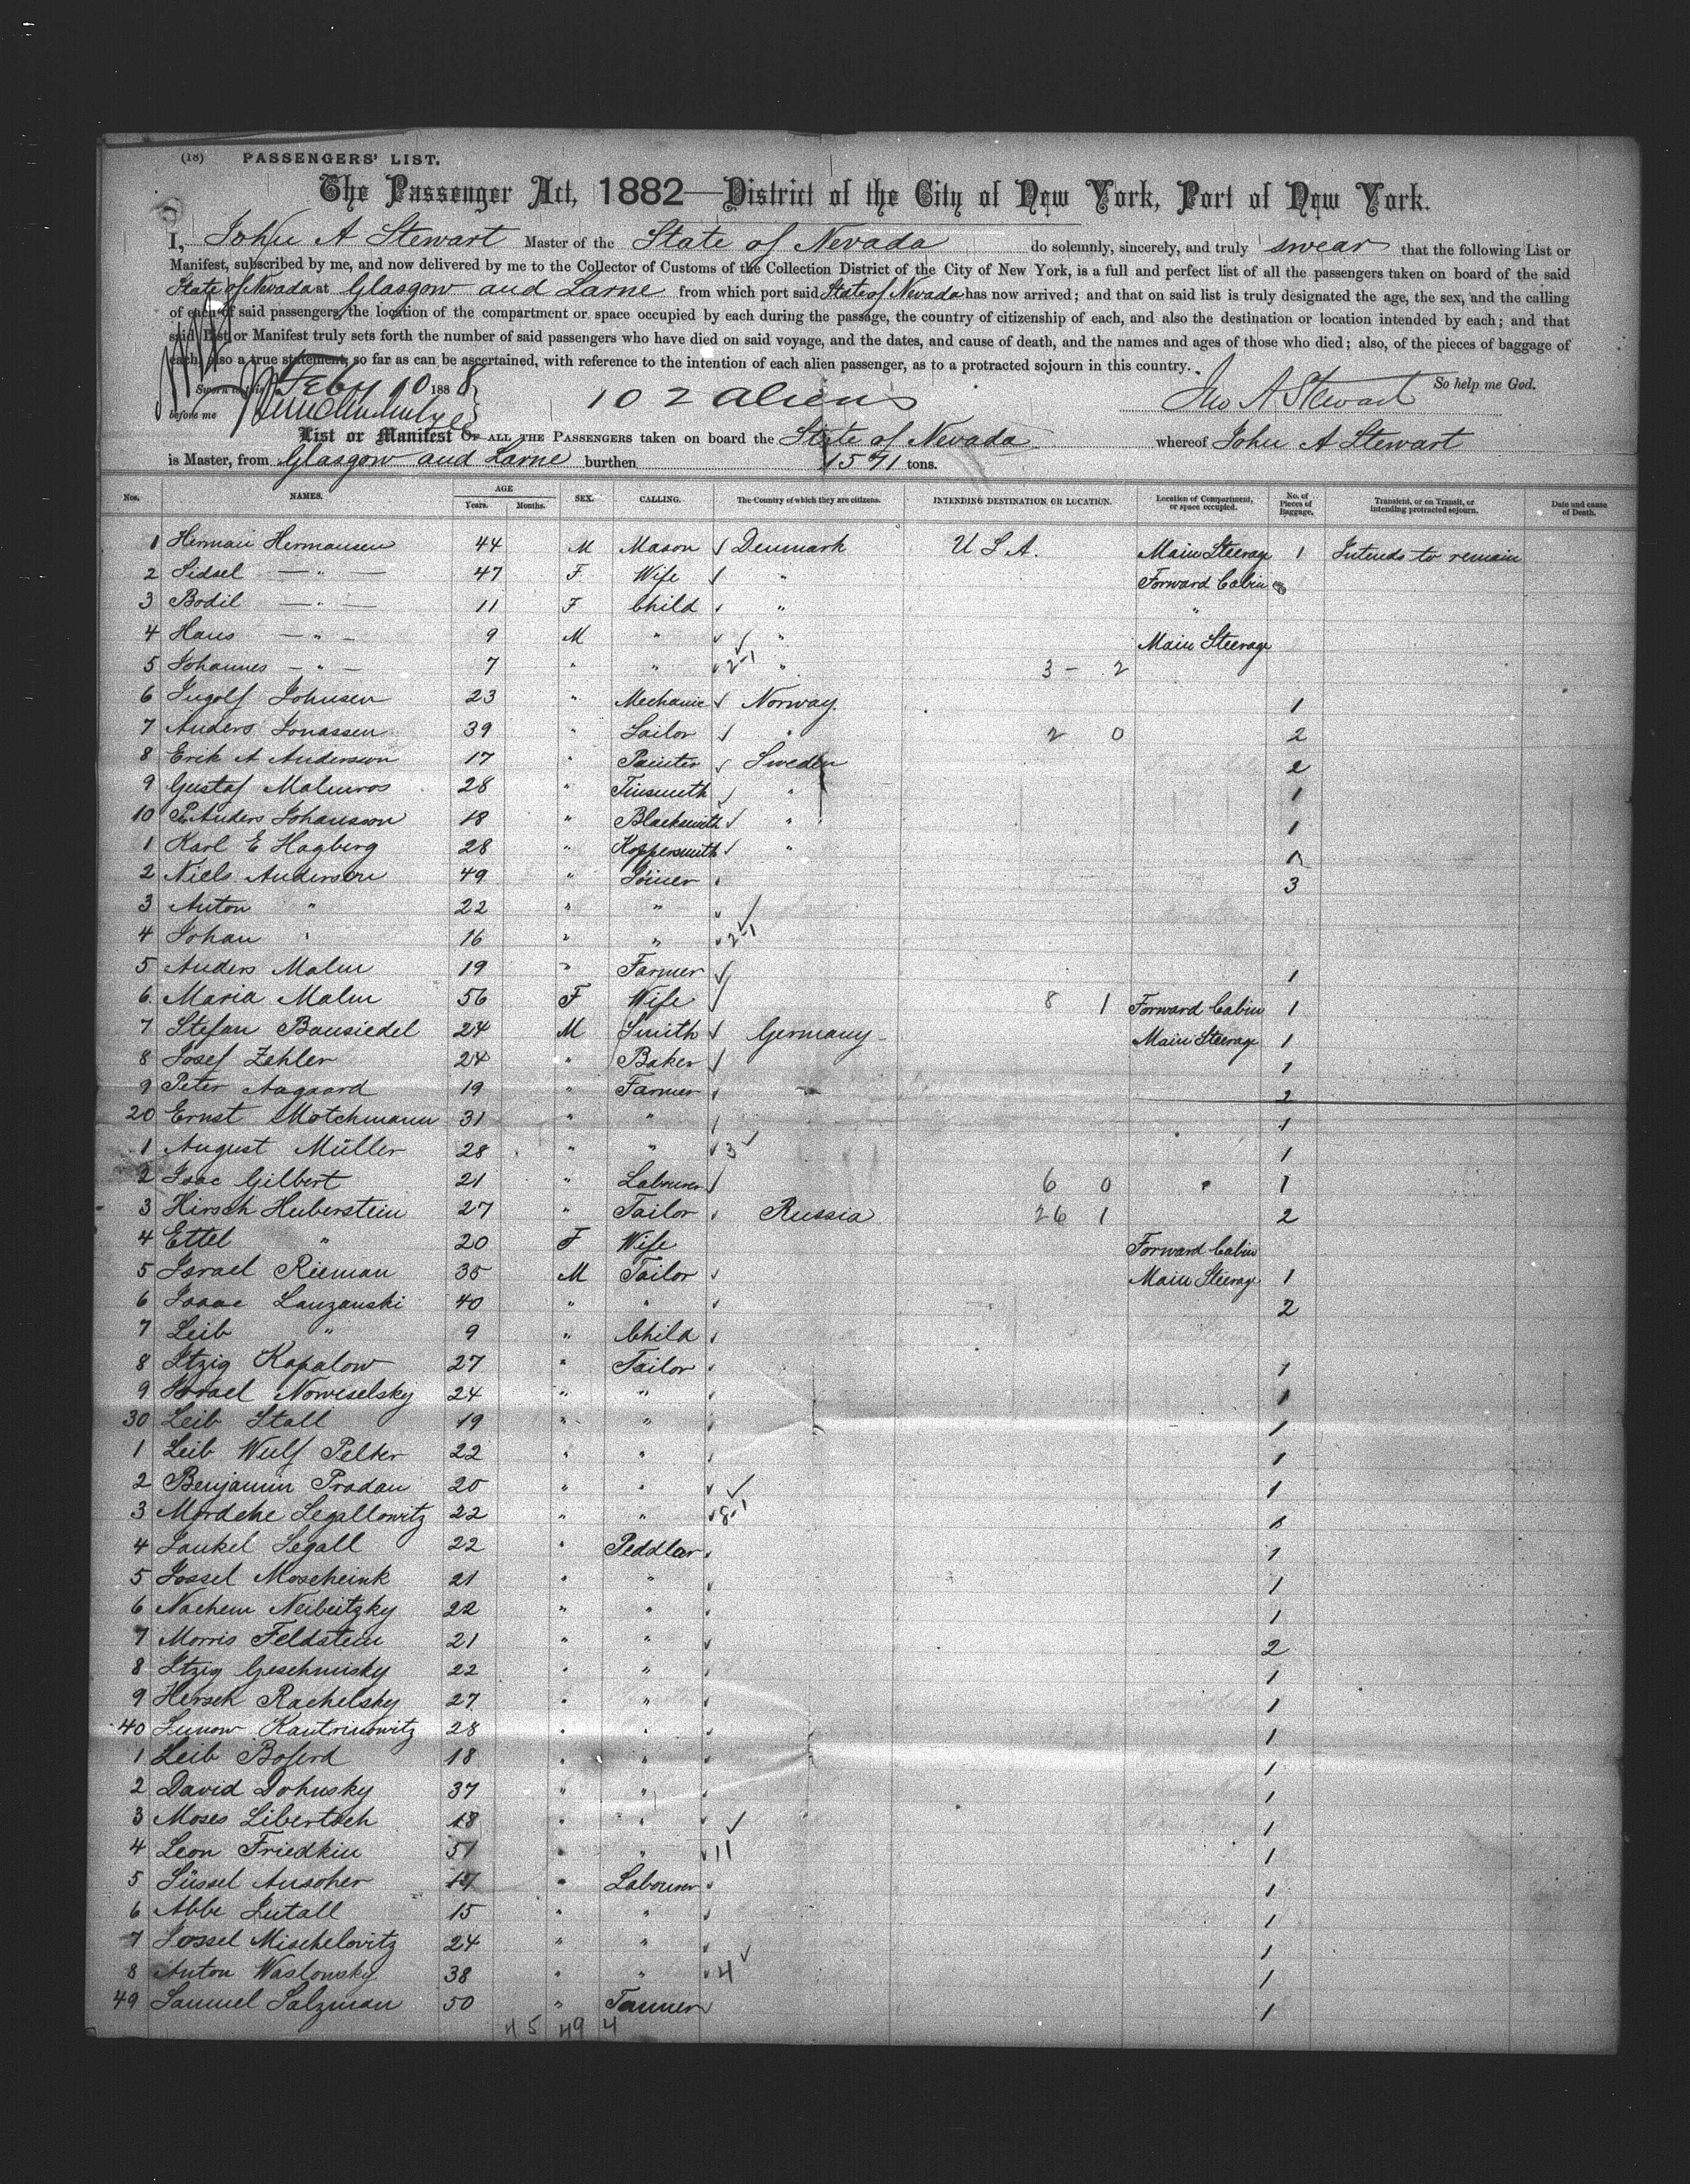 (18) PASSENGERS' LIST.
The Passenger Act, 1882—District of the City of New York, Port of New York.
I, John A Stewart Master of the State of Nevada do solemnly, sincerely, and truly swear that the following List or
Manifest, subscribed by me, and now delivered by me to the Collector of Customs of the Collection District of the City of New York, is a full and perfect list of all the passengers taken on board of the said
State of Nevada at Glasgow and Larne from which port said State of Nevada has now arrived; and that on said list is truly designated the age, the sex, and the calling
of each of said passengers, the location of the compartment or space occupied by each during the passage, the country of citizenship of each, and also the destination or location intended by each; and that
said List or Manifest truly sets forth the number of said passengers who have died on said voyage, and the dates, and cause of death, and the names and ages of those who died; also, of the pieces of baggage of
each, also a true statement, so far as can be ascertained, with reference to the intention of each alien passenger, as to a protracted sojourn in this country.
Sworn to this Feby 10 1888 So help me God.
before me 102 aliens Jno A Stewart
List or Manifest OF ALL THE PASSENGERS taken on board the State of Nevada whereof John A Stewart
is Master, from Glasgow and Larne burthen 1571 tons.
Nos. NAMES. AGE Years. Months. SEX. CALLING. The Country of which they are citizens. INTENDING DESTINATION OR LOCATION. Location of Compartment, or space occupied. No. of Pieces of Baggage. Transient, or on Transit, or intending protracted sojourn. Date and cause of Death.
1 Herman Hermansen 44 M Mason Denmark U S A. Main Steerage 1 Intends to remain
2 Sidsel — " — 47 F Wife " Forward Cabin
3 Bodil — " — 11 F Child " "
4 Hans — " — 9 M " " Main Steerage
5 Johannes — " — 7 " " 2-1 " 3 - 2
6 Ingolf Johnsen 23 " Mechanic Norway 1
7 Anders Jonassen 39 " Sailor " 2 0 2
8 Erik A Andersson 17 " Painter Sweden 2
9 Gustaf Malmros 28 " Tinsmith " 1
10 P. Anders Johansson 18 " Blacksmith " 1
1 Karl E Hagberg 28 " Koppersmith " 1
2 Niels Anderson 49 " Joiner 3
3 Anton " 22 " "
4 Johan " 16 " " 2-1
5 Anders Malm 19 " Farmer 1
6 Maria Malm 56 F Wife 8 1 Forward Cabin 1
7 Stefan Bausiedel 24 M Smith Germany Main Steerage 1
8 Josef Zehler 24 " Baker 1
9 Peter Aagaard 19 " Farmer 2
20 Ernst Motchmann 31 " " 1
1 August Müller 28 " " 3 1
2 Isac Gilbert 21 " Labourer 6 0 " 1
3 Hirsch Huberstein 27 " Tailor Russia 26 1 2
4 Ettel " 20 F Wife Forward Cabin
5 Israel Rieman 35 M Tailor Main Steerage 1
6 Isaac Lanzanski 40 " " 2
7 Leib " 9 " Child
8 Itzig Kapalow 27 " Tailor 1
9 Israel Nowiselsky 24 " " 1
30 Leib Stall 19 " " 1
1 Leib Wulf Pelter 22 " " 1
2 Benjamin Pradan 20 " " 1
3 Mordche Segallowitz 22 " " 8-1 1
4 Jankel Segall 22 " Peddlar 1
5 Jossel Moscheink 21 " " 1
6 Nachem Neibeitzky 22 " " 1
7 Morris Feldstein 21 " " 2
8 Itzig Geschmisky 22 " " 1
9 Hersch Rachelsky 27 " " 1
40 Kantrinowitz 28 " " 1
1 Leib Boferd 18 " " 1
2 David Dohnsky 37 " " 1
3 Moses Libertsch 18 " " 1
4 Leon Friedkin 51 " " 11 1
5 Süssel Anscher " Labourer 1
6 Abbe Lutall 15 " " 1
7 Jossel Mischelovitz 24 " " 1
8 Anton Waslowsky 38 " " 4 1
49 Samuel Salzman 50 " Tanner 1
45 49 4